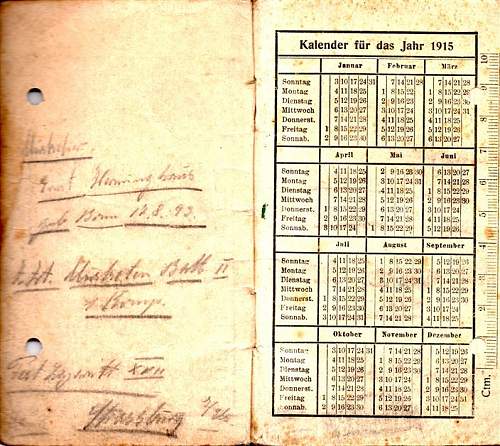 geb. Bonn 10.8.93.
Batl II
Strassburg
Kalender für das Jahr 1915
Januar Februar März
Sonntag 3 10 17 24 31 7 14 21 28 7 14 21 28
Montag 4 11 18 25 1 8 15 22 1 8 15 22 29
Dienstag 5 12 19 26 2 9 16 23 2 9 16 23 30
Mittwoch 6 13 20 27 3 10 17 24 3 10 17 24 31
Donnerst. 7 14 21 28 4 11 18 25 4 11 18 25
Freitag 1 8 15 22 29 5 12 19 26 5 12 19 26
Sonnab. 2 9 16 23 30 6 13 20 27 6 13 20 27
April Mai Juni
Sonntag 4 11 18 25 2 9 16 23 30 6 13 20 27
Montag 5 12 19 26 3 10 17 24 31 7 14 21 28
Dienstag 6 13 20 27 4 11 18 25 1 8 15 22 29
Mittwoch 7 14 21 28 5 12 19 26 2 9 16 23 30
Donnerst. 1 8 15 22 29 6 13 20 27 3 10 17 24
Freitag 2 9 16 23 30 7 14 21 28 4 11 18 25
Sonnab. 3 10 17 24 1 8 15 22 29 5 12 19 26
Juli August September
Sonntag 4 11 18 25 1 8 15 22 29 5 12 19 26
Montag 5 12 19 26 2 9 16 23 30 6 13 20 27
Dienstag 6 13 20 27 3 10 17 24 31 7 14 21 28
Mittwoch 7 14 21 28 4 11 18 25 1 8 15 22 29
Donnerst. 1 8 15 22 29 5 12 19 26 2 9 16 23 30
Freitag 2 9 16 23 30 6 13 20 27 3 10 17 24
Sonnab. 3 10 17 24 31 7 14 21 28 4 11 18 25
Oktober November Dezember
Sonntag 3 10 17 24 31 7 14 21 28 5 12 19 26
Montag 4 11 18 25 1 8 15 22 29 6 13 20 27
Dienstag 5 12 19 26 2 9 16 23 30 7 14 21 28
Mittwoch 6 13 20 27 3 10 17 24 1 8 15 22 29
Donnerst. 7 14 21 28 4 11 18 25 2 9 16 23 30
Freitag 1 8 15 22 29 5 12 19 26 3 10 17 24 31
Sonnab. 2 9 16 23 30 6 13 20 27 4 11 18 25
10
9
8
7
6
5
4
3
2
1
Ctm.